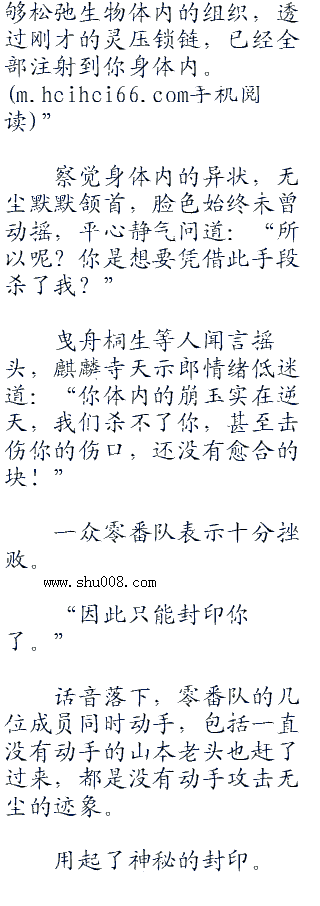 够松弛生物体内的组织，透
过刚才的灵压锁链，已经全
部注射到你身体内。
(m.hcihci66.com手机阅
读)”
察觉身体内的异状，无
尘默默颔首，脸色始终未曾
动摇，平心静气问道：“所
以呢？你是想要凭借此手段
杀了我？”
曳舟桐生等人闻言摇
头，麒麟寺天示郎情绪低迷
道：“你体内的崩玉实在逆
天，我们杀不了你，甚至击
伤你的伤口，还没有愈合的
块！”
一众零番队表示十分挫
败。
www.shu008.com
“因此只能封印你
了。”
话音落下，零番队的几
位成员同时动手，包括一直
没有动手的山本老头也赶了
过来，都是没有动手攻击无
尘的迹象。
用起了神秘的封印。